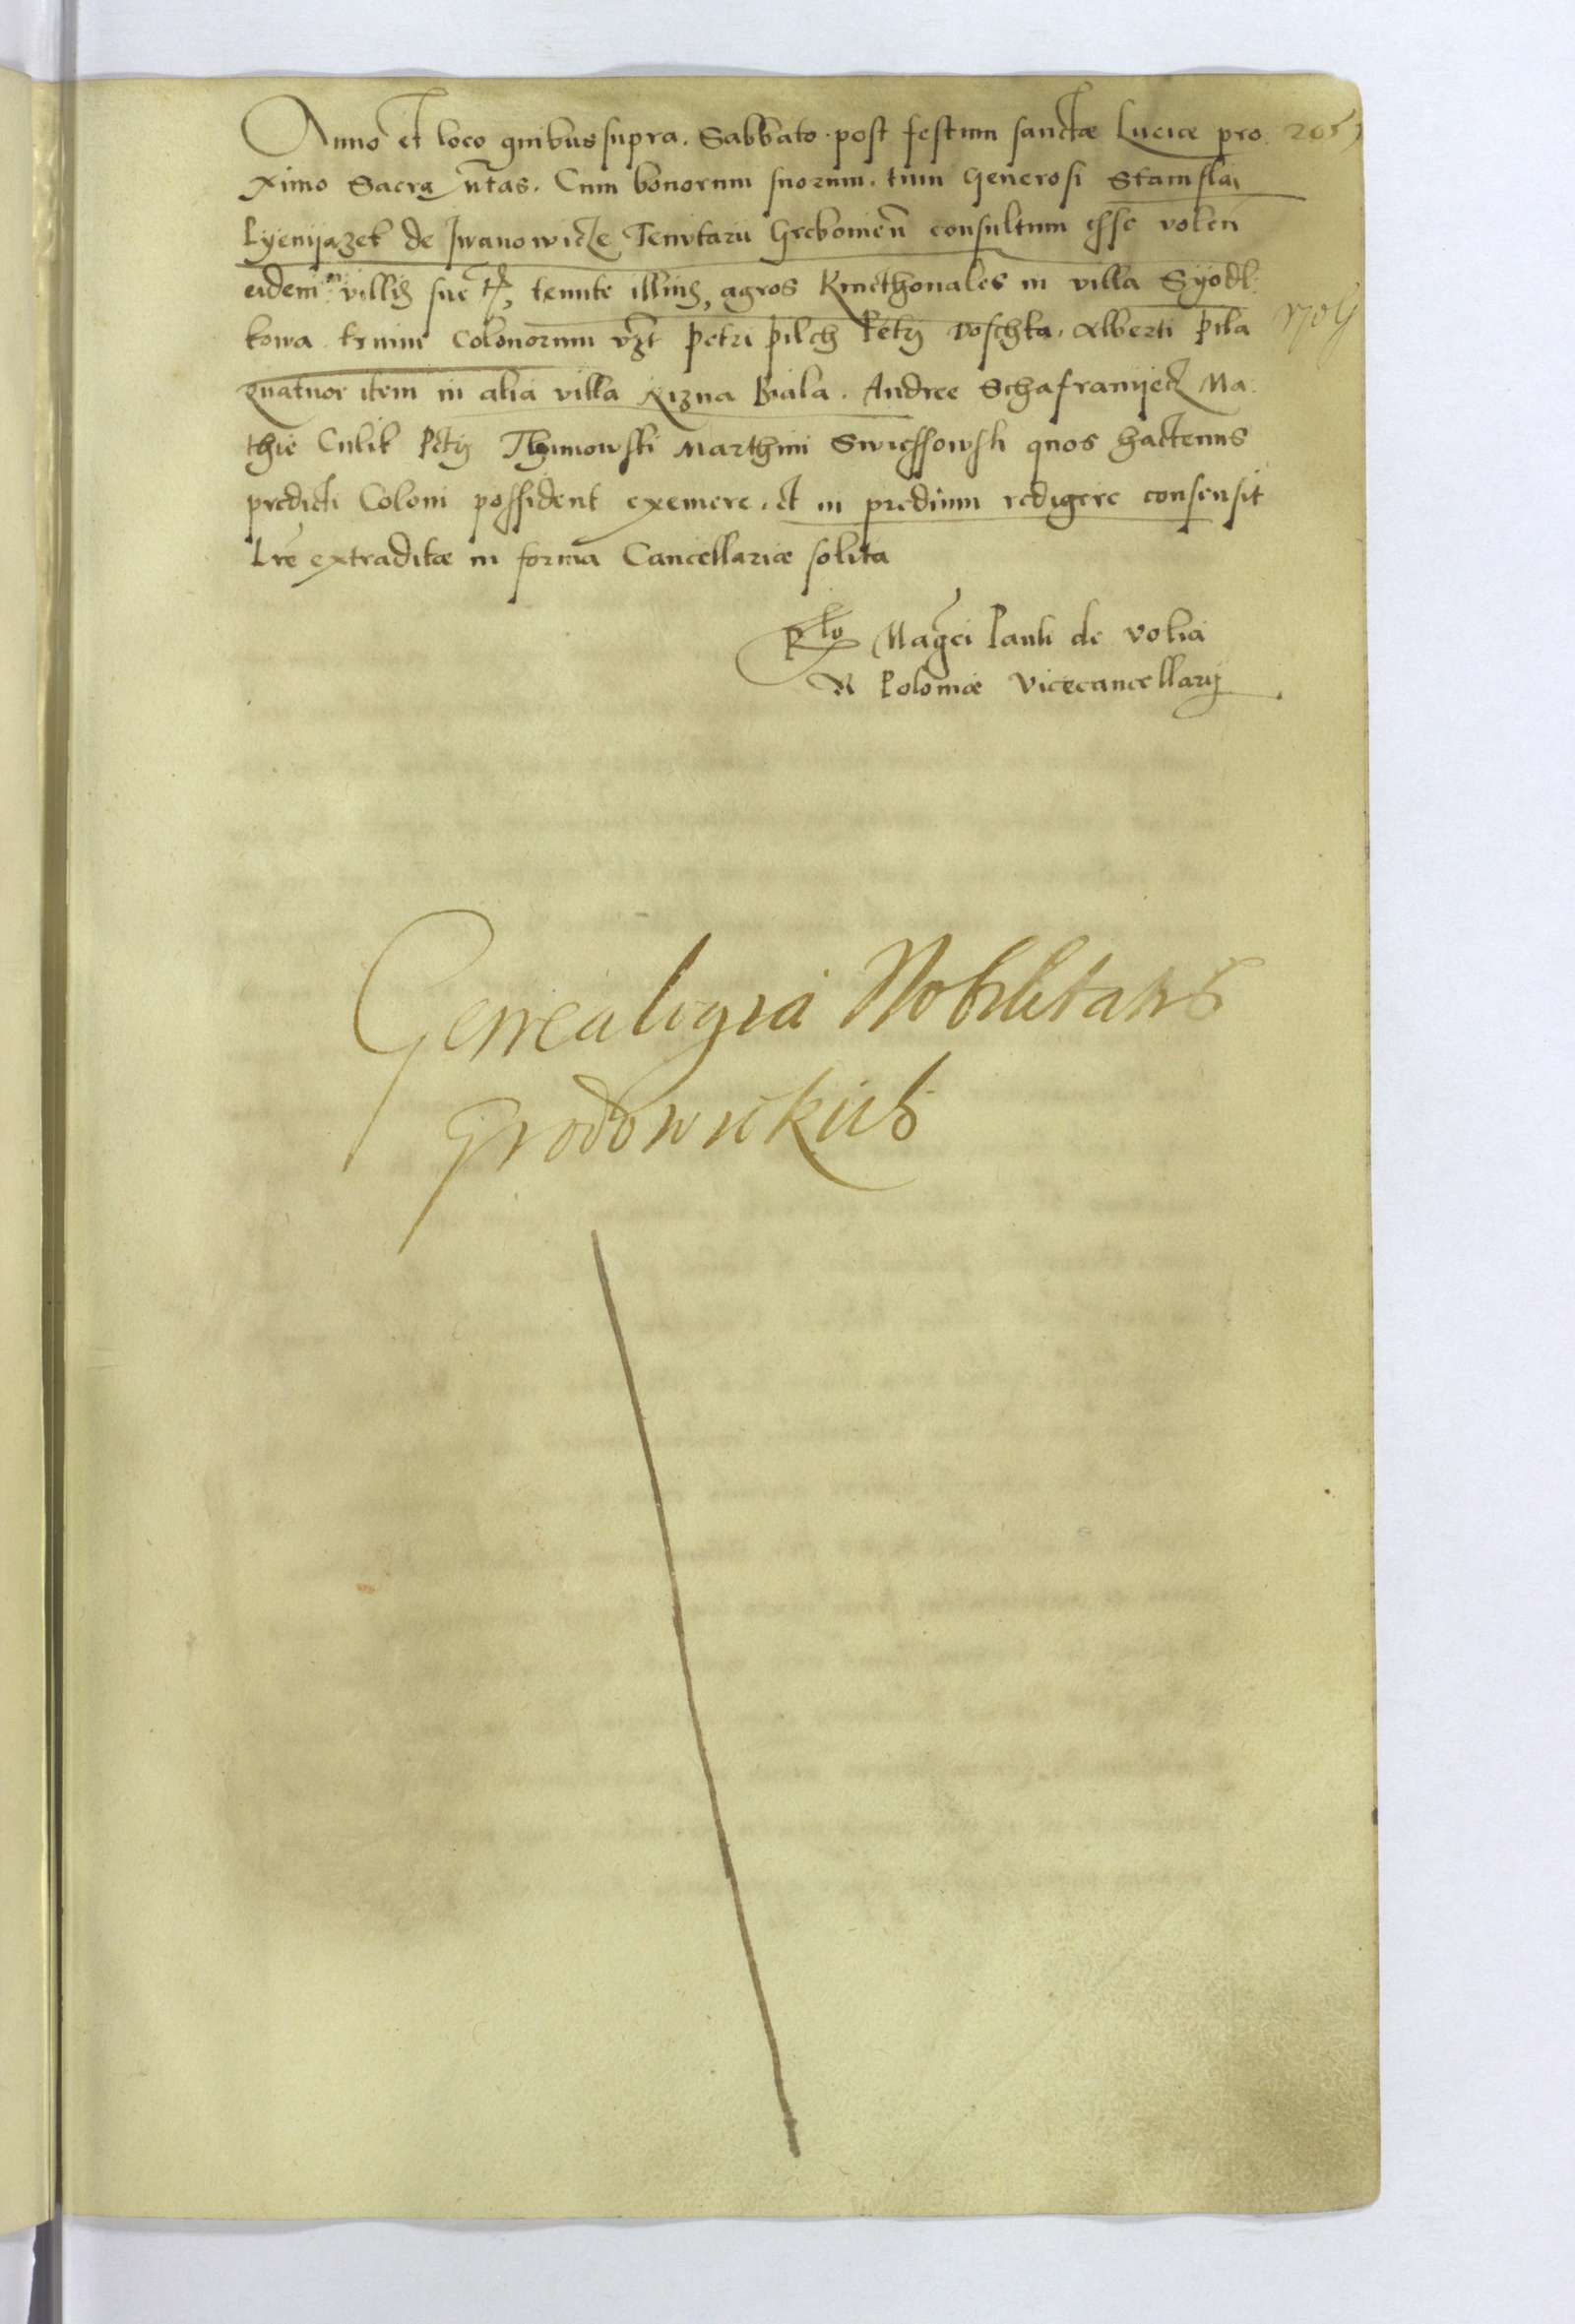 Anno et loco quibus supra. Sabbato post festum sanctæ Luciæ pro
ximo Sacra Mtas. Cum bonorum suorum. tum Generosi Stanislai
Lyenyazek de Jwanowicze Tenutarii Grebonień consultum esse voleń
eidem villis suę tenute illius, agros Kmethonales in villa Syodl:
kowa trium Colonorum vzt Petri Pilch Petri Doschka. Alberti Pila
quatuor item in alia villa Nizna Biala. Andree Schaframyecz Ma:
thie Culik Petri Thymowski Marthini Swiessowski quos hactenus
predicti Coloni possident eximere. et in predium redigere consensit
Lrē extraditæ in forma Cancellariæ solita
Rlo Magci Pauli de Volia
R Poloniæ Vicecancellarij
Genealogia Nobilitatis
Grodowickiis